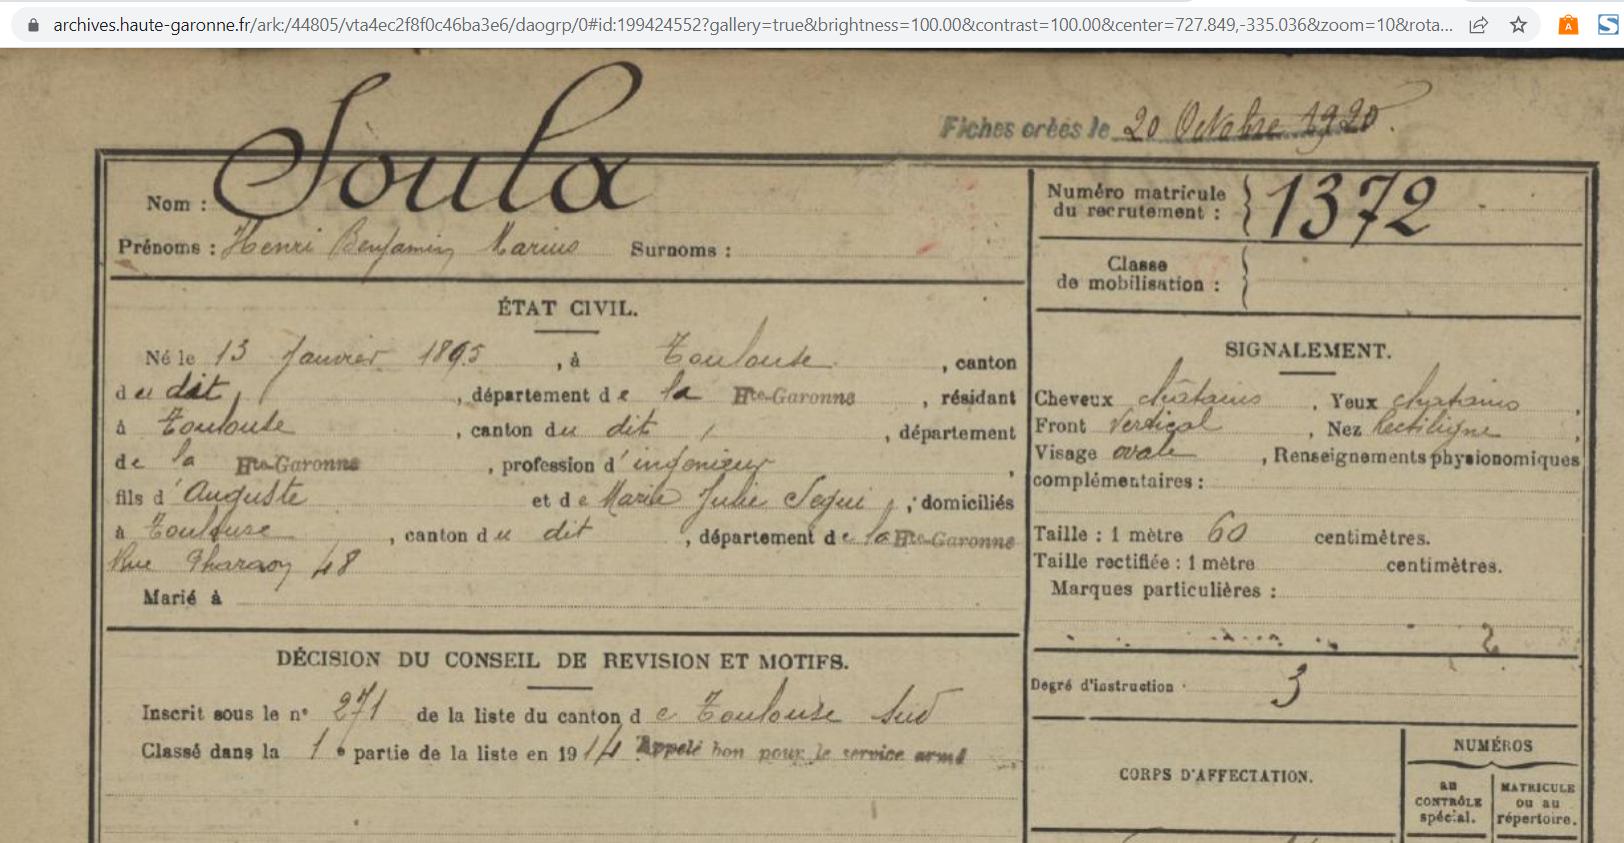 archives.haute-garonne.fr/ark:/44805/vta4ec2f8f0c46ba3e6/daogrp/0#id:199424552?gallery=true&brightness=100.00&contrast=100.00&center=727.849,-335.036&zoom=10&rota...
Fiches créées le 20 Octobre 1920.
Nom : Soula
Prénoms : Henri Benjamin Marius Surnoms :
Numéro matricule
du recrutement : 1372
Classe
de mobilisation :
ÉTAT CIVIL.
Né le 13 Janvier 1895, à Toulouse, canton
du dit, département de la Hte-Garonne, résidant
à Toulouse, canton du dit, département
de la Hte-Garonne, profession d'ingénieur,
fils d'Auguste et de Marie Julie Segui, domiciliés
à Toulouse, canton du dit, département de la Hte-Garonne
Rue Pharaon 48
Marié à
SIGNALEMENT.
Cheveux châtains, Yeux chatains,
Front Vertical, Nez Rectiligne,
Visage ovale, Renseignements physionomiques
complémentaires :
Taille : 1 mètre 60 centimètres.
Taille rectifiée : 1 mètre centimètres.
Marques particulières :
Degré d'instruction 3
DÉCISION DU CONSEIL DE REVISION ET MOTIFS.
Inscrit sous le n° 271 de la liste du canton de Toulouse Sud
Classé dans la 1e partie de la liste en 1914 Appelé bon pour le service armé
CORPS D'AFFECTATION.
NUMÉROS
au
CONTRÔLE
spécial.
MATRICULE
ou au
répertoire.